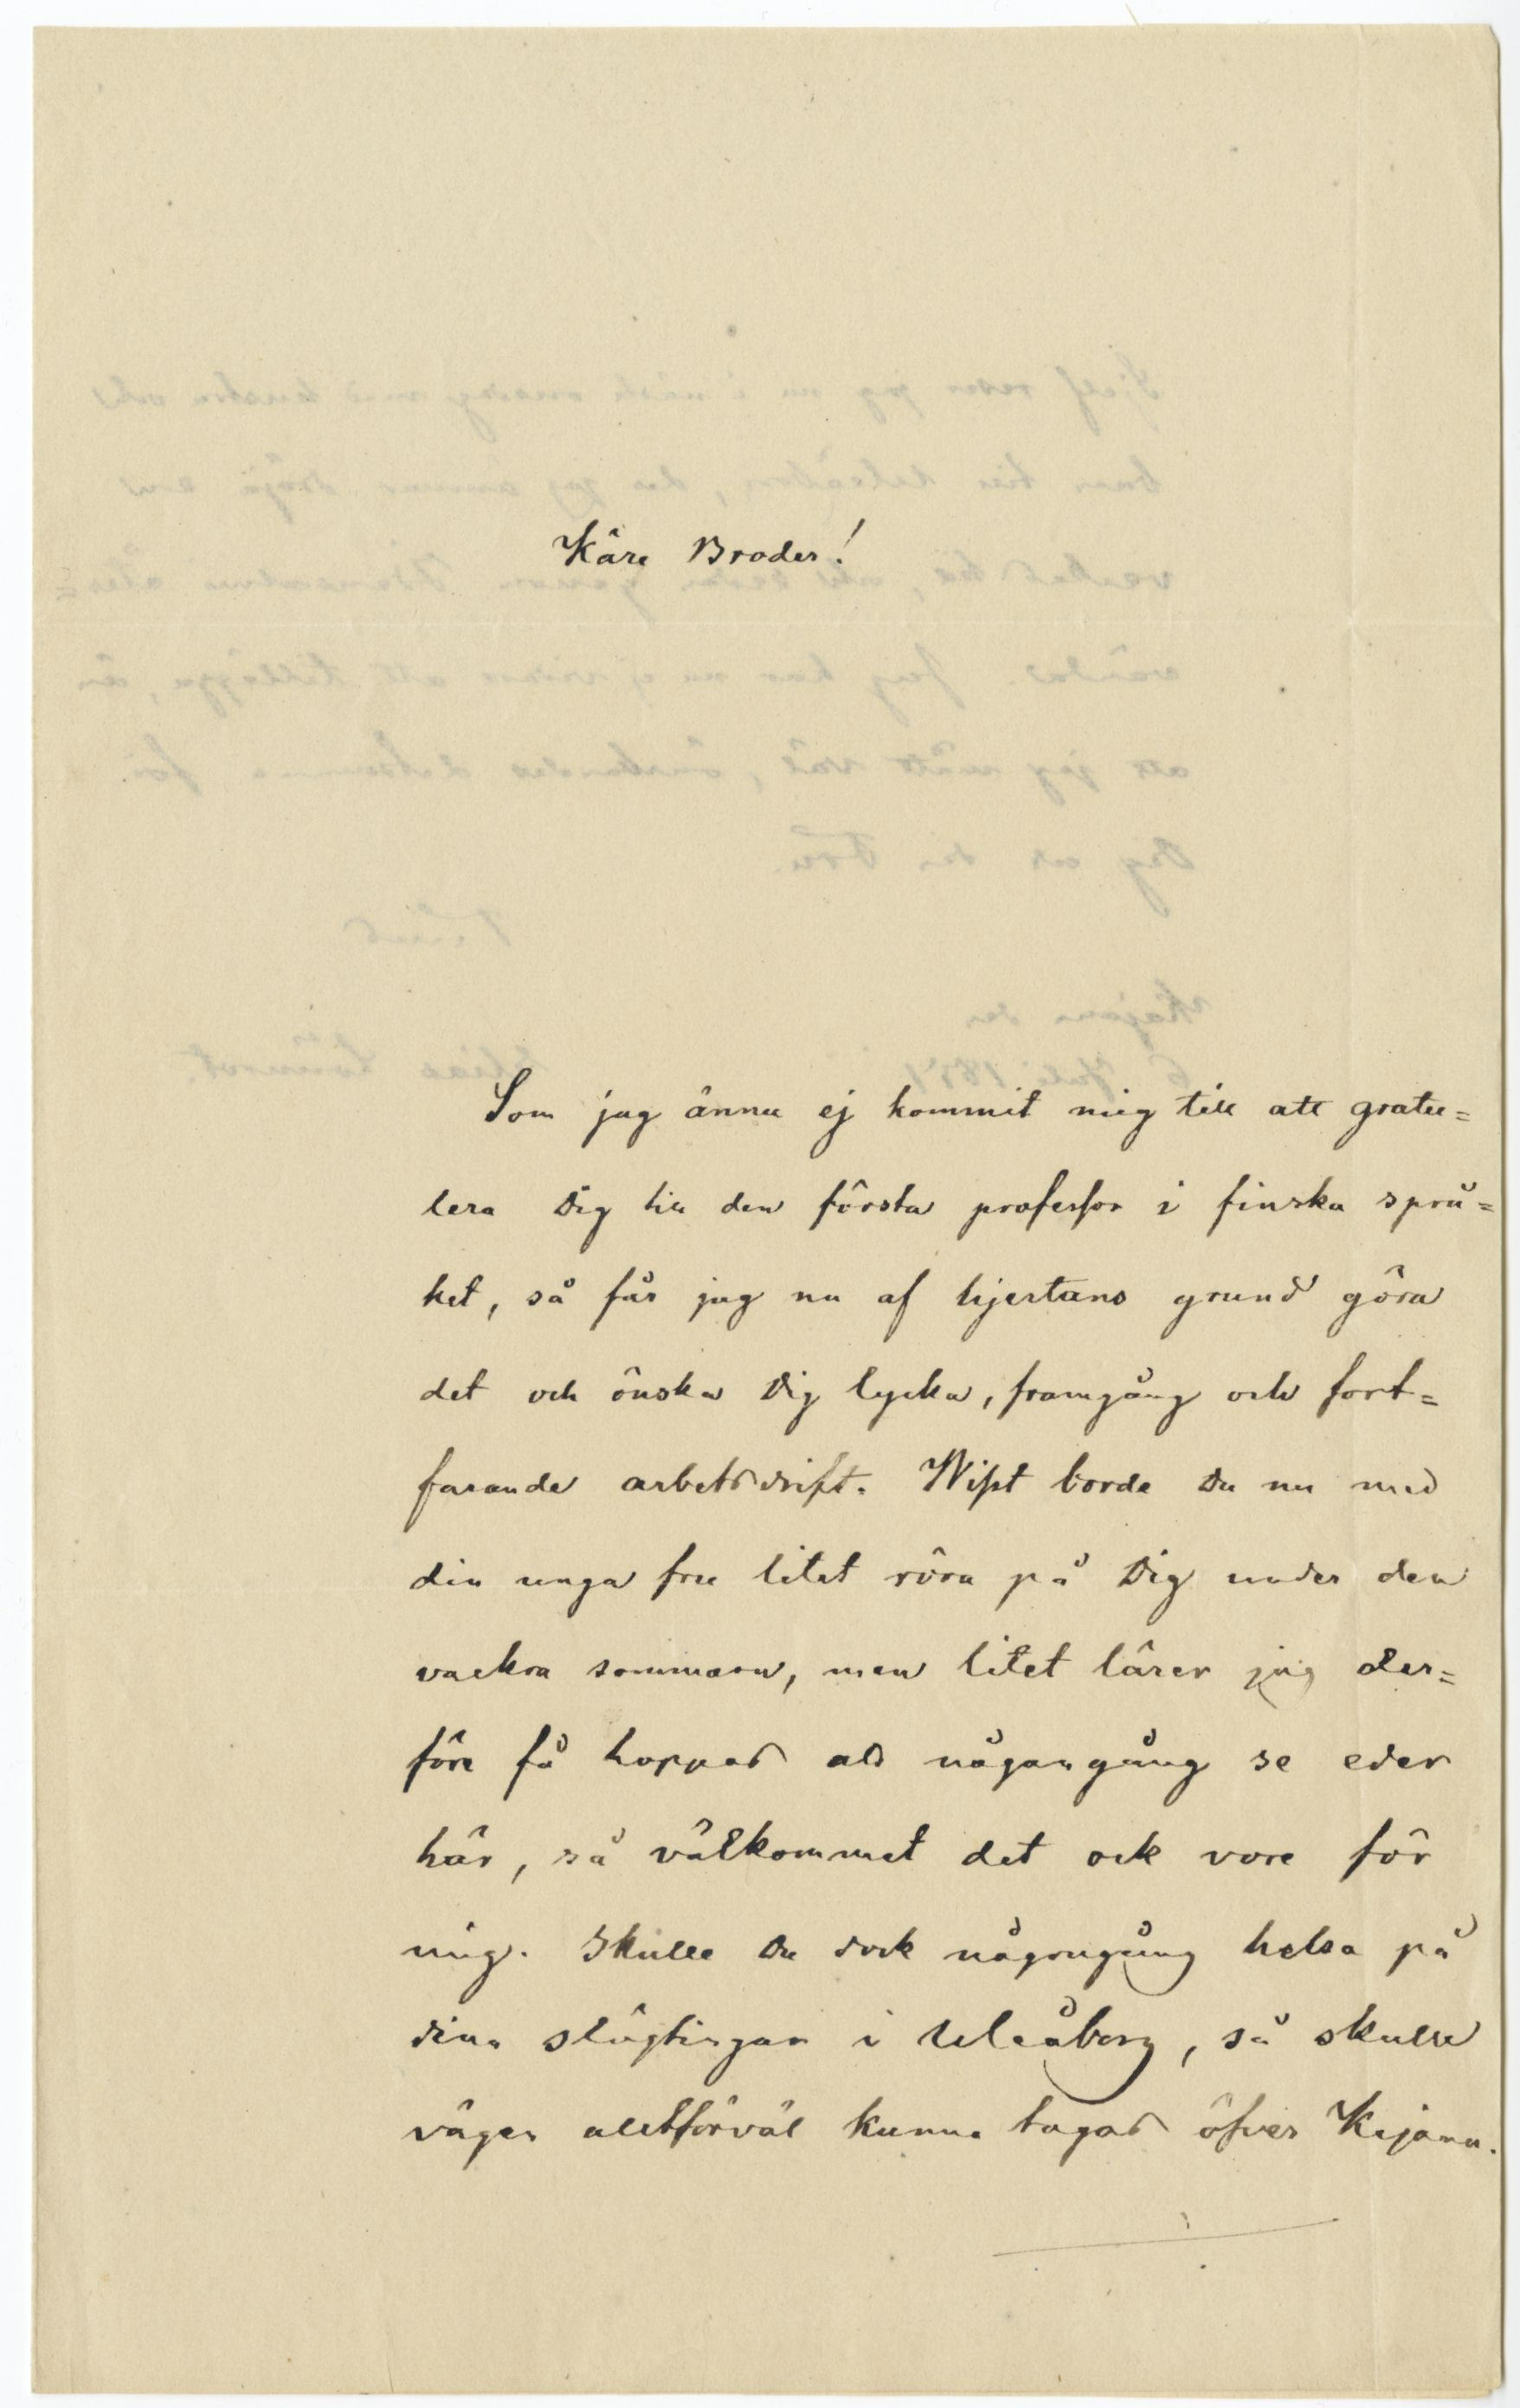 Käre Broder!
Som jag ännu ej kommit mig till att gratu=
lera Dig till den första professor i finska språ=
ket, så får jag nu af hjertans grund göra
det och önska Dig lycka, framgång och fort=
farande arbetsdrift. Wisst borde Du nu med
din unga fru litet röra på Dig under den
vackra sommarn, men litet lärer jag der=
före få hoppas att någongång se eder
här, så välkommet det ock vore för
mig. Skulle Du dock någongång helsa på
dina slägtingar i Uleåborg, så skulle
vägen alltförväl kunna tagas öfver Kajana.